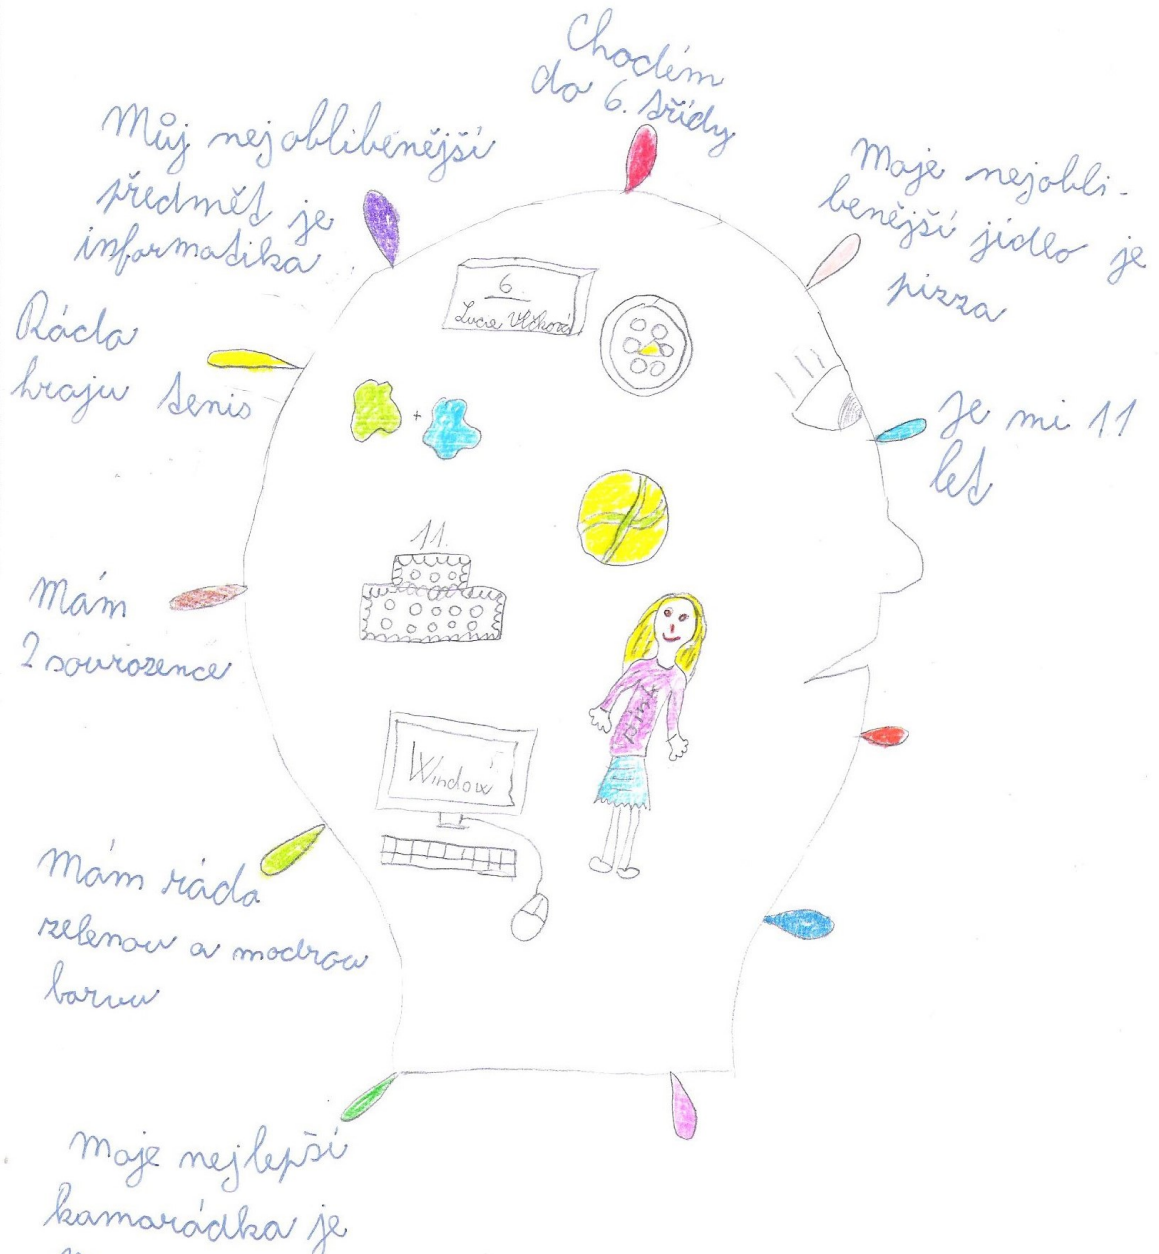 Chodím
do 6. třídy
Můj nejoblíbenější
předmět je
informatika
Moje nejoblí-
benější jídlo je
pizza
Ráda
hraju tenis
Je mi 11
let
Mám
2 sourozence
Mám ráda
zelenou a modrou
barvu
Moje nejlepší
kamarádka je
6.
Lucie Vlčková
+
11.
pink
Windows